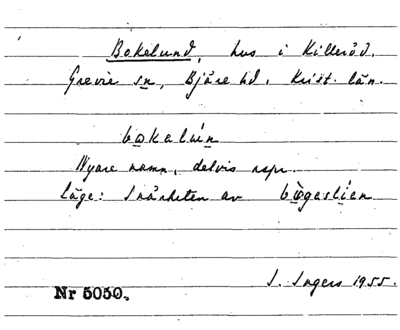 Bokelund, hus i Killeröd.
Grevie sn, Bjäre hd. Krist. län.
bokalun
Nyare namn, delvis rspr.
Läge: I närheten av bögaslien
I. Ingers 1955.
Nr 5050.